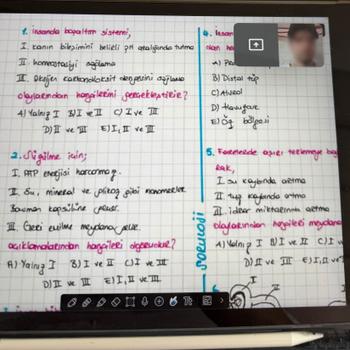 1. insanda boşaltım sistemi,
I. kanın bileşimini belirli pH aralığında tutma
II. homeostasiyi sağlama
III. Oksijen karbondioksit dengesini sağlama
olaylarından hangilerini gerçekleştirir?
A) Yalnız I B) I ve II C) I ve III
D) II ve III E) I, II ve III
2. Süzülme için;
I. ATP enerjisi harcanmaz.
II. Su, mineral ve
Bowman kapsülüne geçer.
III. Geri emilme meydana gelir.
açıklamalarından hangileri doğrudur?
A) Yalnız I B) I ve II C) I ve III
D) II ve III E) I, II ve III
SORULOJİ
4. İnsan
olan
A)
B) Distal tüp
C) Alveol
D) Havuzcuk
E) Öz bölgesi
5. Farelerde aşırı terlemeye
rak,
I. su kaybında artma
II. tuz kaybında artma
III. idrar miktarında artma
olaylarından hangileri meydana
A) Yalnız I B) I ve II C) I v
D) II ve III E) I, II ve
6.
I
II